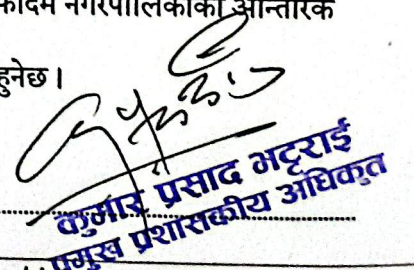 कदम नगरपालिकाको आन्तरिक
हुनेछ।
कुमार प्रसाद भट्टराई
प्रमुख प्रशासकीय अधिकृत